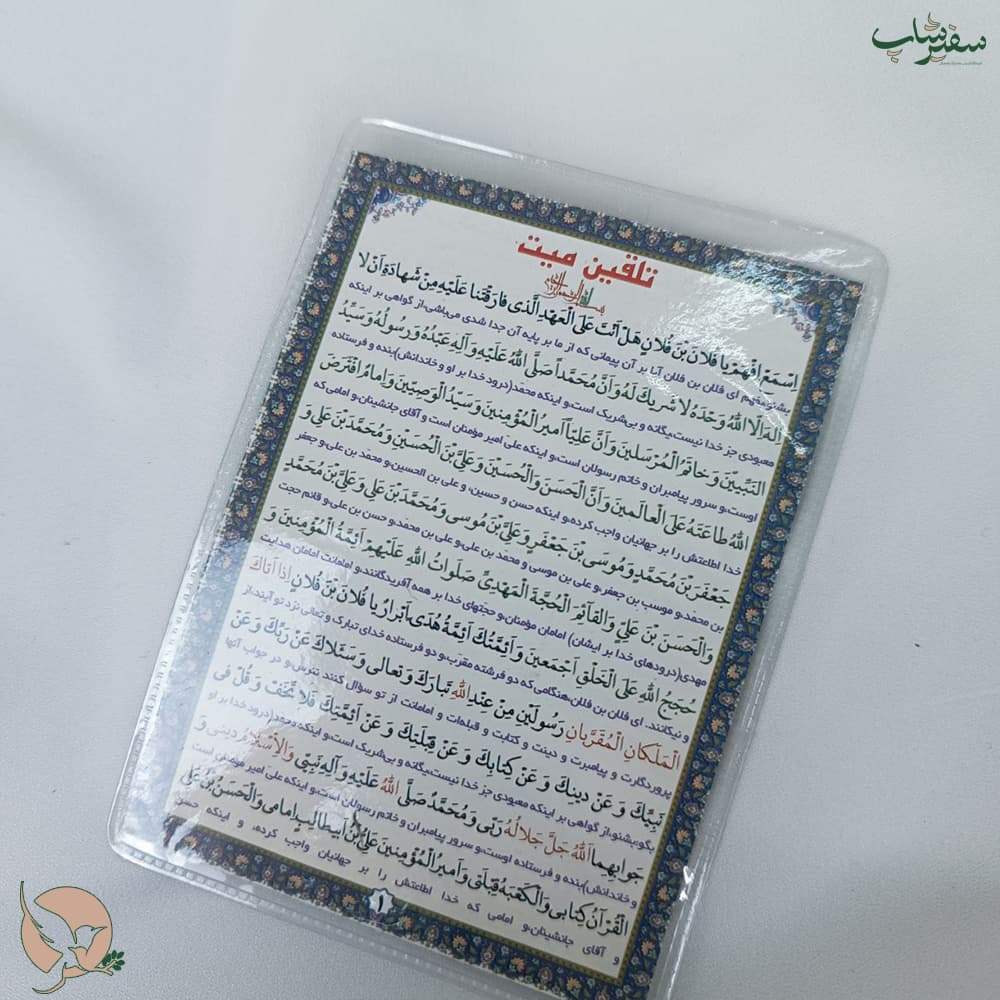 سفیرشاپ
تلقین میت
اِسْمَعْ اِفْهَمْ يا فُلانَ بْنَ فُلانٍ هَلْ اَنْتَ عَلَى الْعَهْدِ الَّذى فارَقْتَنا عَلَيْهِ مِنْ شَهادَةِ اَنْ لا
بشنو بفهم ای فلان بن فلان آیا بر آن پیمانی که از ما بر پایه آن جدا شدی می‌باشی،از گواهی بر اینکه
اِلهَ اِلاَّ اللهُ وَحْدَهُ لا شَريكَ لَهُ وَاَنَّ مُحَمَّداً صَلَّى اللهُ عَلَيْهِ وَآلِهِ عَبْدُهُ وَرَسُولُهُ وَسَيِّدُ
معبودی جز خدا نیست،یگانه و بی‌شریک است،و اینکه محمّد(درود خدا بر او و خاندانش)بنده و فرستاده
النَّبِيّينَ وَخاتَمُ الْمُرْسَلينَ وَاَنَّ عَلِيّاً اَميرُ الْمُؤْمِنينَ وَسَيِّدُ الْوَصِيّينَ وَاِمامٌ افْتَرَضَ
اوست،و سرور پیامبران و خاتم رسولان است،و اینکه علی امیر مؤمنان است و آقای جانشینان،و امامی که
اللهُ طاعَتَهُ عَلَى الْعالَمينَ وَاَنَّ الْحَسَنَ وَالْحُسَيْنَ وَعَلِيَّ بْنَ الْحُسَيْنِ وَمُحَمَّدَ بْنَ عَلِيٍّ وَ
خدا اطاعتش را بر جهانیان واجب کرده،و اینکه حسن و حسین، و علی بن الحسین،و محمّد بن علی،و جعفر
جَعْفَرَ بْنَ مُحَمَّدٍ وَمُوسَى بْنَ جَعْفَرٍ وَعَلِيَّ بْنَ مُوسى وَمُحَمَّدَ بْنَ عَلِيٍّ وَعَلِيَّ بْنَ مُحَمَّدٍ
بن محمّد،و موسی بن جعفر،و علی بن موسی و محمّد بن علی،و علی بن محمّد،و حسن بن علی،و قائم حجت
وَالْحَسَنَ بْنَ عَلِيٍّ وَالْقآئِمَ الْحُجَّةَ الْمَهْدِىَّ صَلَواتُ اللهِ عَلَيْهِمْ اَئِمَّةُ الْمُؤْمِنينَ وَ
مهدی(درودهای خدا بر ایشان) امامان مؤمنان،و حجتهای خدا بر همه آفریدگانند،و امامانت امامان هدایت
حُجَجُ اللهِ عَلَى الْخَلْقِ اَجْمَعينَ وَاَئِمَّتُكَ اَئِمَّةُ هُدىً اَبْرارٌ يا فُلانَ بْنَ فُلانٍ اِذا اَتاكَ
و نیکانند. ای فلان بن فلان،هنگامی که دو فرشته مقرّب،و دو فرستاده خدای تبارک و تعالی نزد تو آیند،از
الْمَلَكانِ الْمُقَرَّبانِ رَسُولَيْنِ مِنْ عِنْدِ اللهِ تَبارَكَ وَتَعالى وَسَئَلاكَ عَنْ رَبِّكَ وَعَنْ
پروردگارت و پیامبرت و دینت و کتابت و قبله‌ات و امامانت از تو سؤال کنند نترس،و در جواب آنها
نَبِيِّكَ وَعَنْ دينِكَ وَعَنْ كِتابِكَ وَعَنْ قِبْلَتِكَ وَعَنْ اَئِمَّتِكَ فَلا تَخَفْ وَقُلْ فى
جَوابِهِما اَللهُ جَلَّ جَلالُهُ رَبّى وَمُحَمَّدٌ صَلَّى اللهُ عَلَيْهِ وَآلِهِ نَبِيّى وَالاِْسْلامُ دينى وَ
و خاندانش)بنده و فرستاده اوست،و سرور پیامبران و خاتم رسولان است،و اینکه علی امیر مؤمنان است
الْقُرْآنُ كِتابى وَالْكَعْبَةُ قِبْلَتى وَاَميرُ الْمُؤْمِنينَ عَلِىُّ بْنُ اَبيطالِبٍ اِمامى وَالْحَسَنُ بْنُ عَلِىٍّ
و آقای جانشینان،و امامی که خدا اطاعتش را بر جهانیان واجب کرده، و اینکه حسن
۱